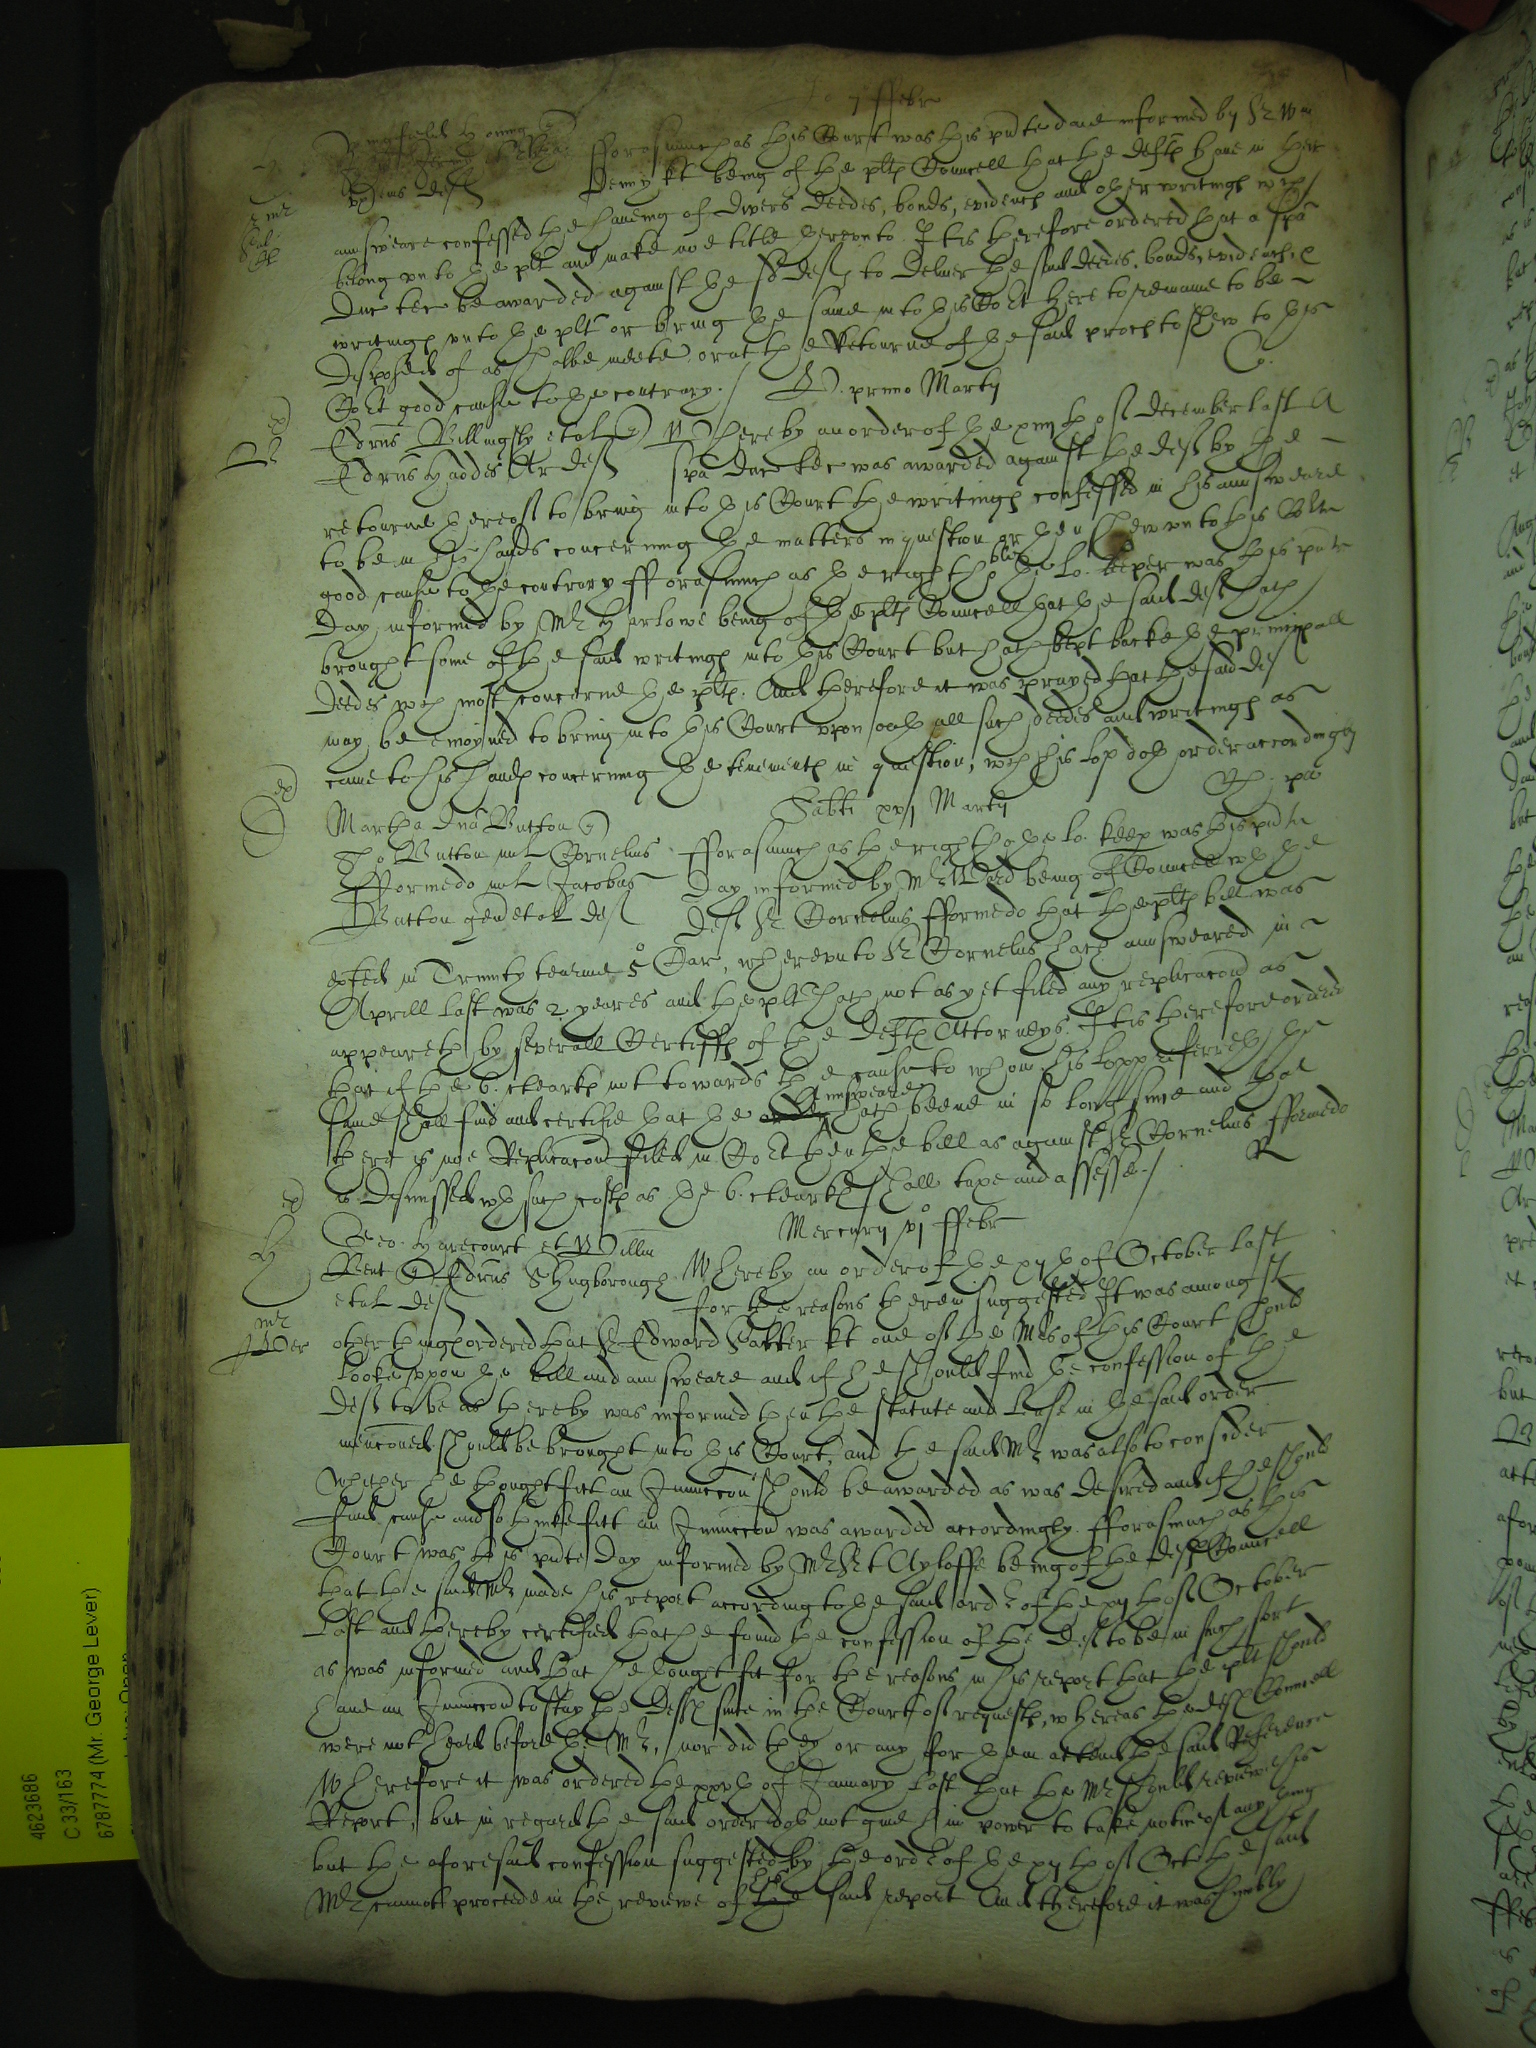 7 ffebr
fforasmuch as this Court was this pnte daie informed by Sr Wm
uxor eius deft Denny kt being of the plts Councell that the defts have in their
answeare confessed the haveing of divers deedes, bonds, evidences and other writings wch
belong unto the plt and make noe title thereunto It is therefore ordered that a spa
duc tec be awarded against the sd defts to deliver the said deedes, bonds, evidences, &
writings unto the plts or bring the same into this Cort there to remaine to be
disposed of as shalbe meete or at the Retourne of the said proces to shew to this
Cort good cause to the contrary. / D. primo Martij
Co.
Edrus Billingsly et al Whereby an order of the xiijth of December last A
Edrus Haddes Ar deft spa duc tec was awarded against the deft by the
retourne thereof to bring into this Court the writings confessed in his answeare
to be in his hands concerning the matters in question or then shew unto this Court
good cause to the contrary fforasmuch as the right ho ble the lo. keeper was this pnte
day informed by Mr Harlowe being of the plts Councell that the said deft hath
brought some of the said writings into this Court but hath kept backe the principall
deedes wch most concerne the plts. And therefore it was prayed that the said deft
may be enioyned to bring into this Court upon oath all such deedes and writings as
came to his hands concerning the tenements in question, wch his lop doth order accordingly
Sabti xvj Martij
Martha Button
Tho Button mil Cornelius fforasmuch as the right ho the lo. keep was this pnte
fformedo mil Jacobus day informed by Mr Ward being of Councell wth the
Button gen et al deft deft Sr Cornelius fformedo that the plts bill was
exhited in Trinity tearme 5o Car, whereunto Sr Cornelius hath answeared in
Aprill last was 2 yeares and the plt hath not as yet filed any replicacon as
appeareth by severall Certiffs of the defts Attorneys. It is therefore ordered
that if the 6. clearks not towards the cause to whom his lopp referreth the
same shall find and certifie that the answeare hath beene in so long since and that
there is noe Replicacon filed in Cort then the bill as against Sr Cornelius fformedo
is dismissed wth such costs as the 6. clearks shall taxe and assesse. / R
Mercurij vjo ffebr
Geo. Harecourt et Willm
Bent Edrus Shugborough Whereby an order of the xijth of October last
et al deft for the reasons therein suggested It was amongst
other things ordered that Sr Edward Salter kt one of the Mrs of this Court should
looke upon the bill and answeare and if he should find the confession of the
deft to be as thereby was informed then the statute and lease in the said order
menconed should be brought into this Court, and the said Mr was also to consider
whether he thought fitt an Iniunccon should be awarded as was desired and if he should
find cause and so thinke fitt an Iniunccon was awarded accordingly. fforasmuch as this
Court was this pnte day informed by Mr Srt Ayloffe being of the defts Councell
that the said Mr made his report according to the said order of the xijth of October
last and thereby certified that he found the confession of the deft to be in such sort
as was informed and that he thought fit for the reasons in his report that the plt should
have an Iniunccon to stay the defts suite in the Court of requests, whereas the defts Councell
were not heard before the Mr, nor did they or any for them attend the said Reference
Wherefore it was ordered the xxvth of January last that the Mr should reviewe his
Report, but in regard the said order doth not give him power to take notice of any thing
but the aforesaid confession suggested by the order of the xijth of Octo the said
Mr cannot proceede in the reviewe of his said report And therefore it was humbly
4623686
C 33/163
67877774 (Mr. George Lever)